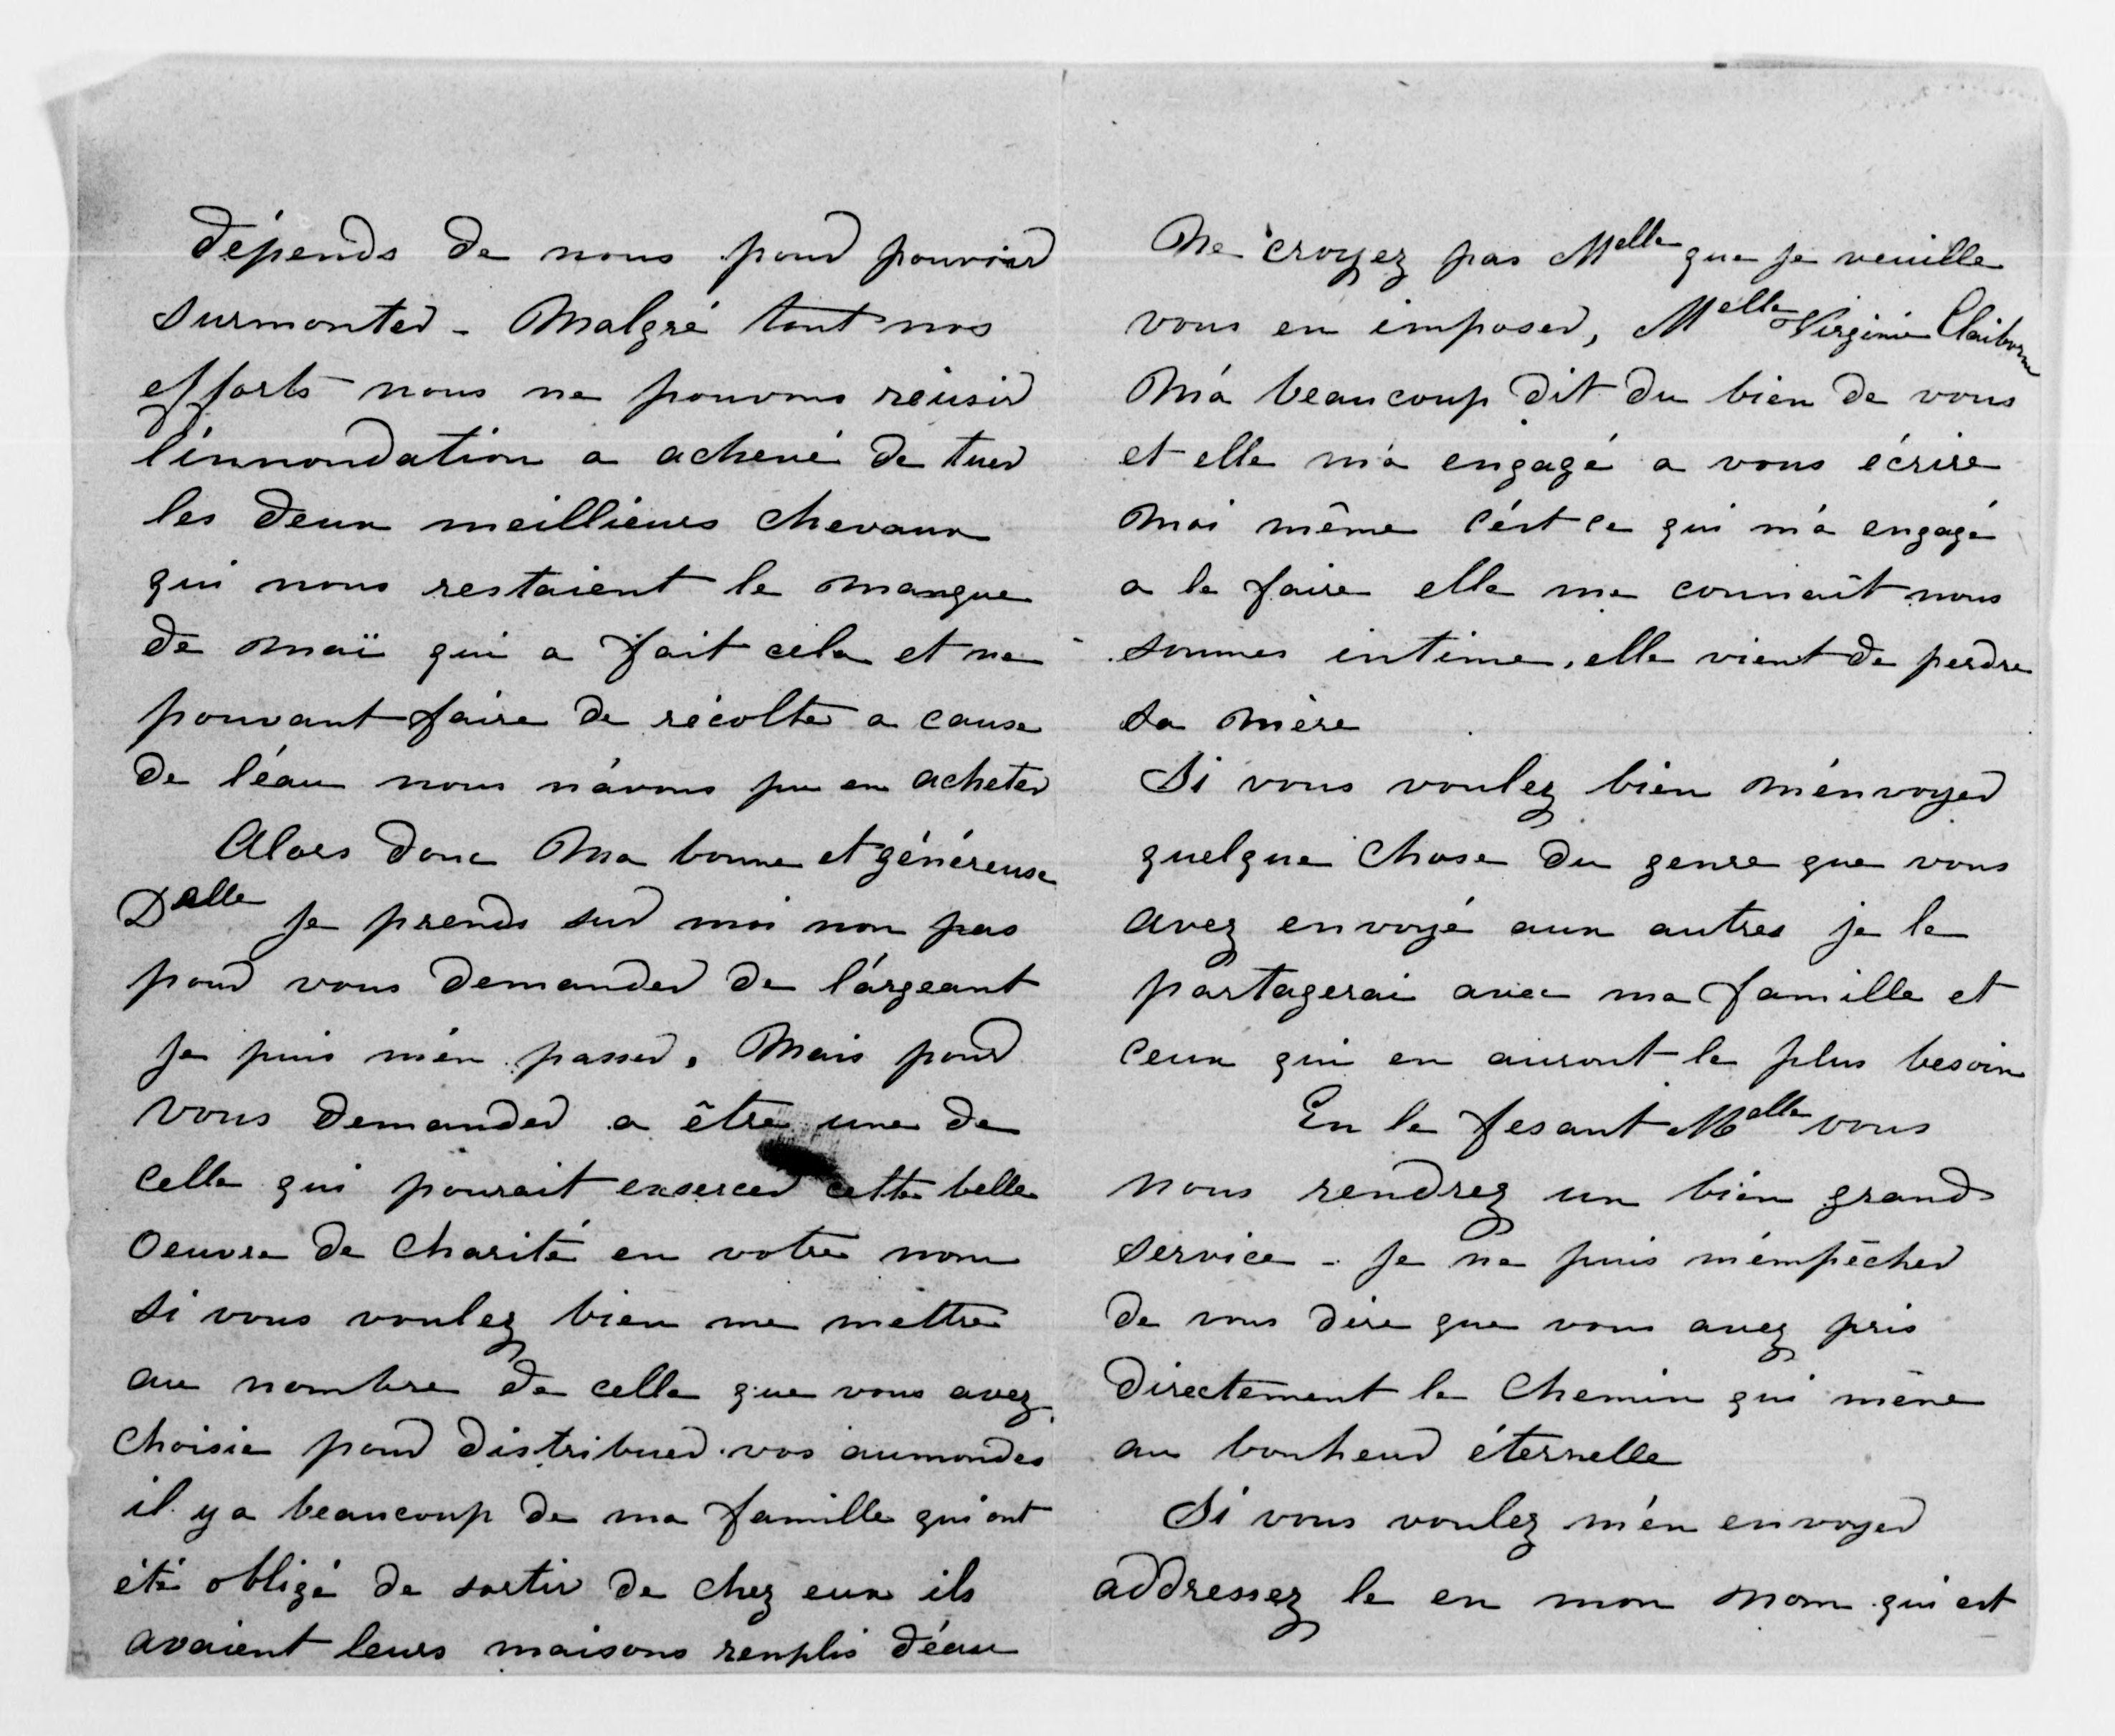 dépends de nous pour pouvoir
surmonter - Malgré tout nos
efforts nous ne pouvons réusir
l'énnondation a achevé de tuer
les deux meillieurs chevaux
qui nous restaient le manque
de maï qui a fait cela et ne
pouvant faire de récolte a cause
de l'éau nous n'avons pu en acheter
Alors donc Ma bonne et généreuse
Delle je prends sur moi non pas
pour vous demander de l'argeant
je puis m'én passer. Mais pour
vous demander a être une de
celle qui pourait exsercer cette belle
Oeuvre de Charité en votre nom
si vous voulez bien me mettre
au nombre de celle que vous avez
choisie pour distribuer vos aumondes
il y a beaucoup de ma famille qui ont
été obligé de sortir de chez eux ils
avaient leurs maisons renplis d'éau
Ne croyez pas Melle que je veuille
vous en imposer, Melle Virginie Claiborne
M'a beaucoup dit du bien de vous
et elle m'a engagé a vous écrire
Moi même c'ést ce qui m'a engagé
a le faire elle me connait nous
sommes intime, elle vient de perdre
sa Mère
Si vous voulez bien m'énvoyer
quelque chose du genre que vous
avez envoyé aux autres je le
partagerai avec ma famille et
ceux qui en auront le plus besoin
En le fesant Melle vous
nous rendrez un bien grand
service - Je ne puis m'émpêcher
de vous dire que vous avez pris
directement le Chemin qui mène
au bonheur éternelle
Si vous voulez m'én envoyer
addressez le en mon Nom qui est